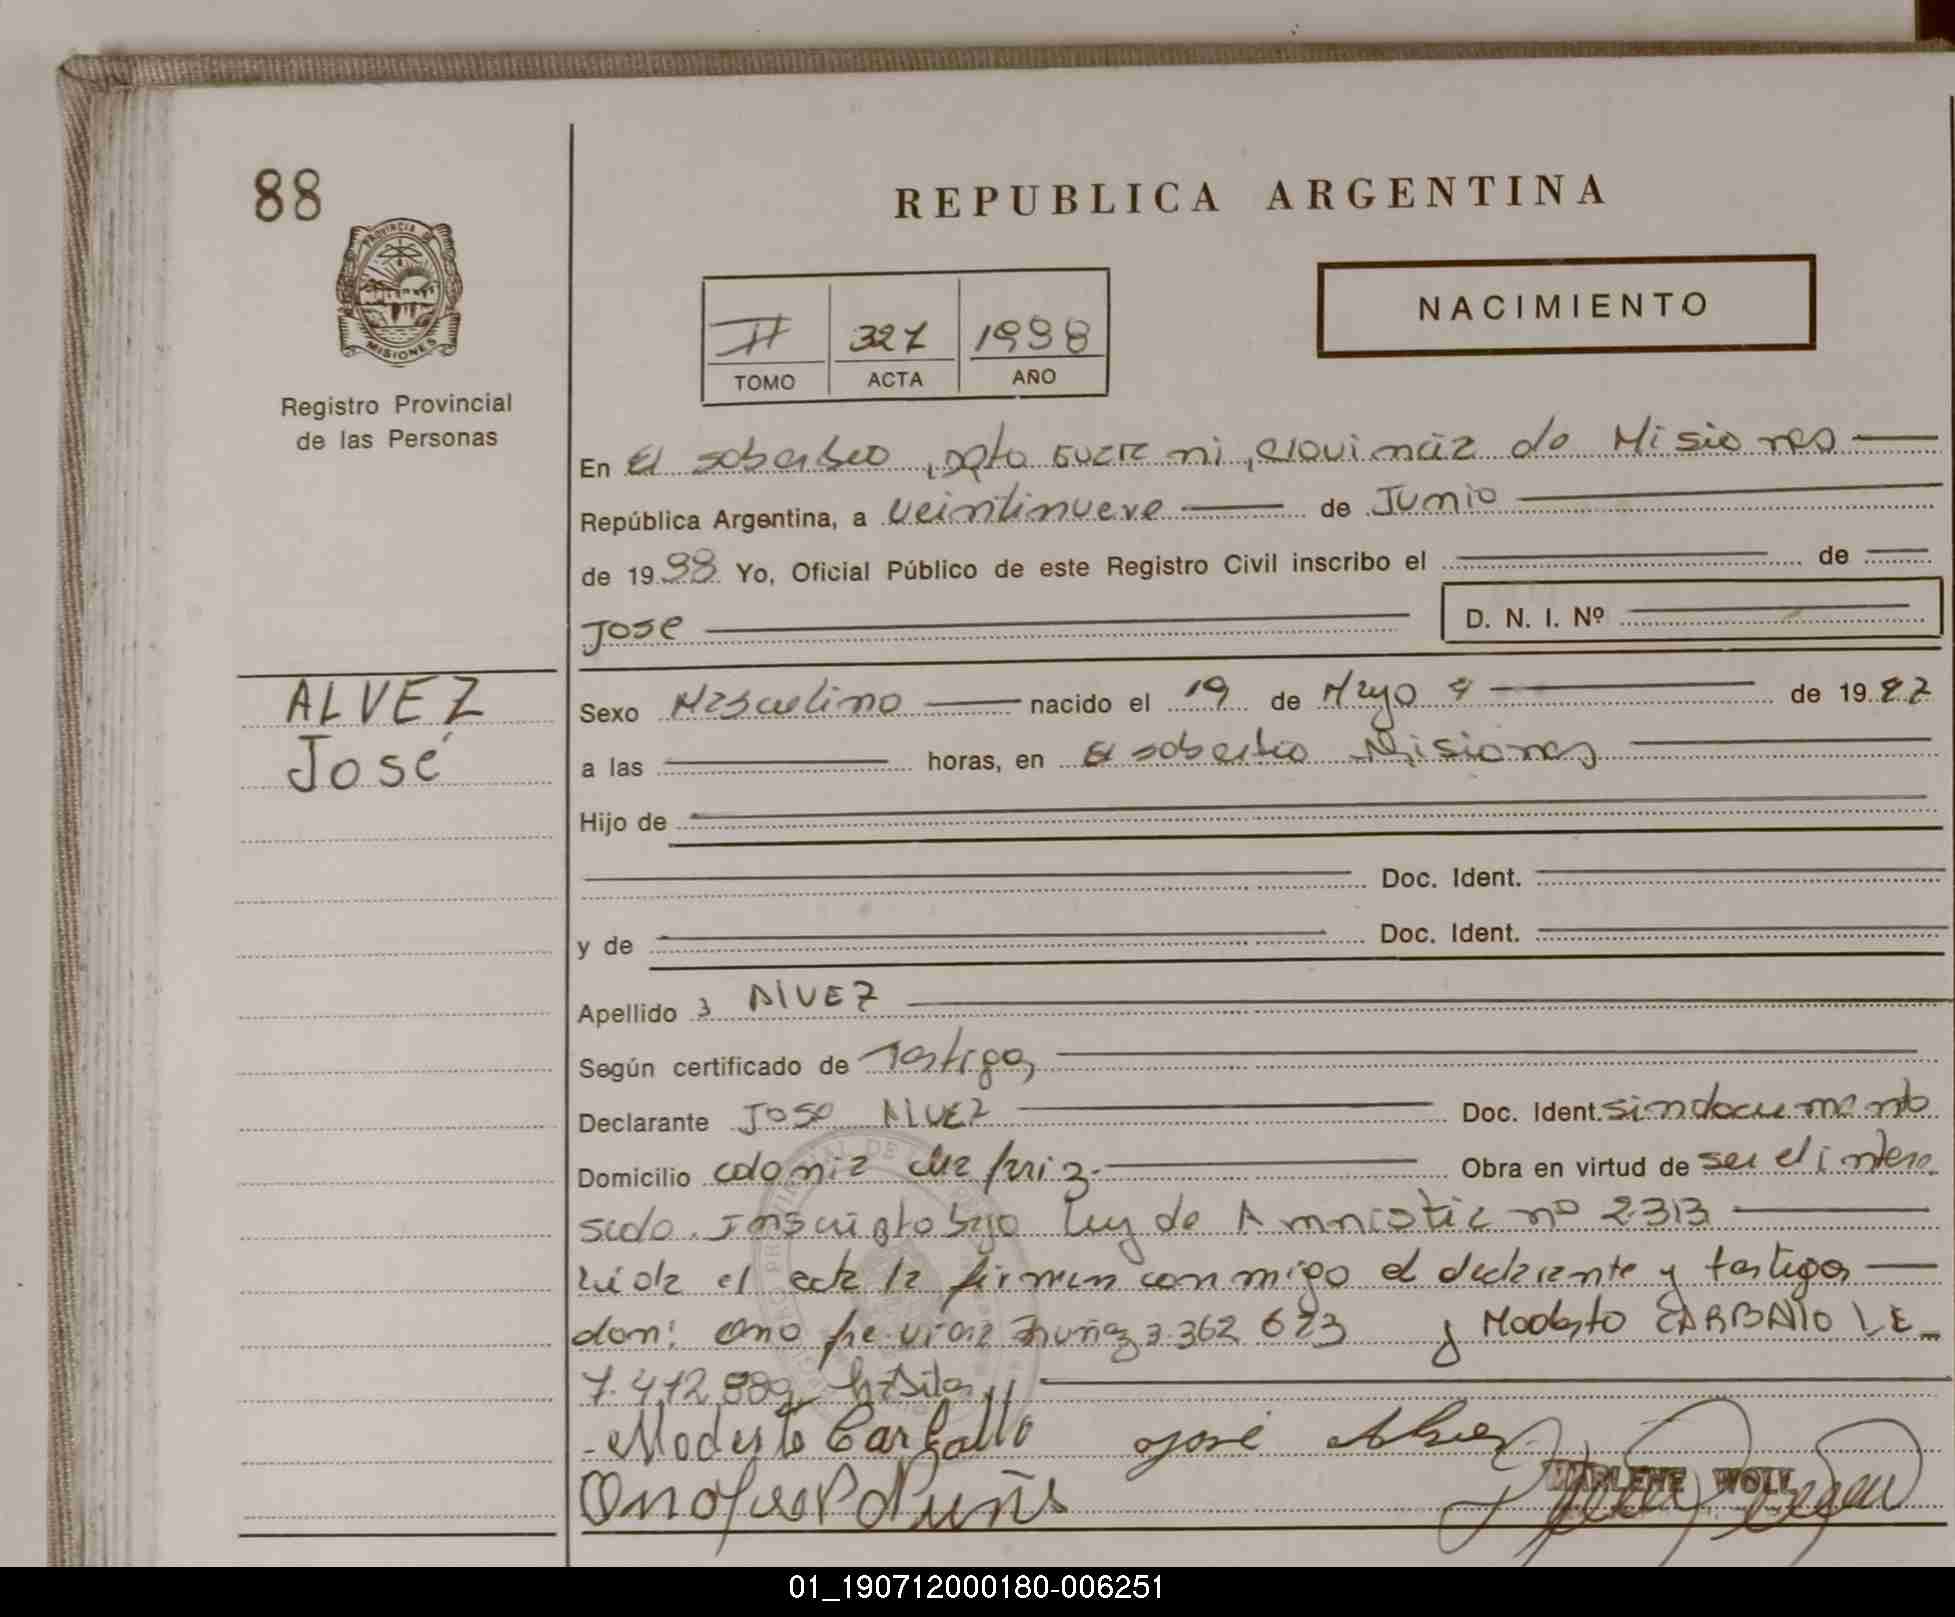 88
REPUBLICA ARGENTINA
PROVINCIA DE
MISIONES
Registro Provincial
de las Personas
NACIMIENTO
II 327 1998
TOMO ACTA AÑO
En El soberbio, Dpto Guarani, provincia de Misiones
República Argentina, a veintinueve de Junio
de 1998 Yo, Oficial Público de este Registro Civil inscribo el de
Jose
D. N. I. Nº
ALVEZ
José
Sexo Masculino nacido el 19 de Mayo de 19
a las horas, en El soberbio Misiones
Hijo de
Doc. Ident.
y de Doc. Ident.
Apellido Alvez
Según certificado de Testigos
Declarante Jose Alvez Doc. Ident. sin documento
Domicilio colonia Obra en virtud de ser el intere
sado. Inscripto bajo Ley de Amnistia nº 2313
leida el acta la firman conmigo el declarante y testigos
don: Nuñez 3.362.623 y Modesto CARBALLO LE
7.412.889
Modesto Carballo José Alvez
MARLENE WOLL
01_190712000180-006251